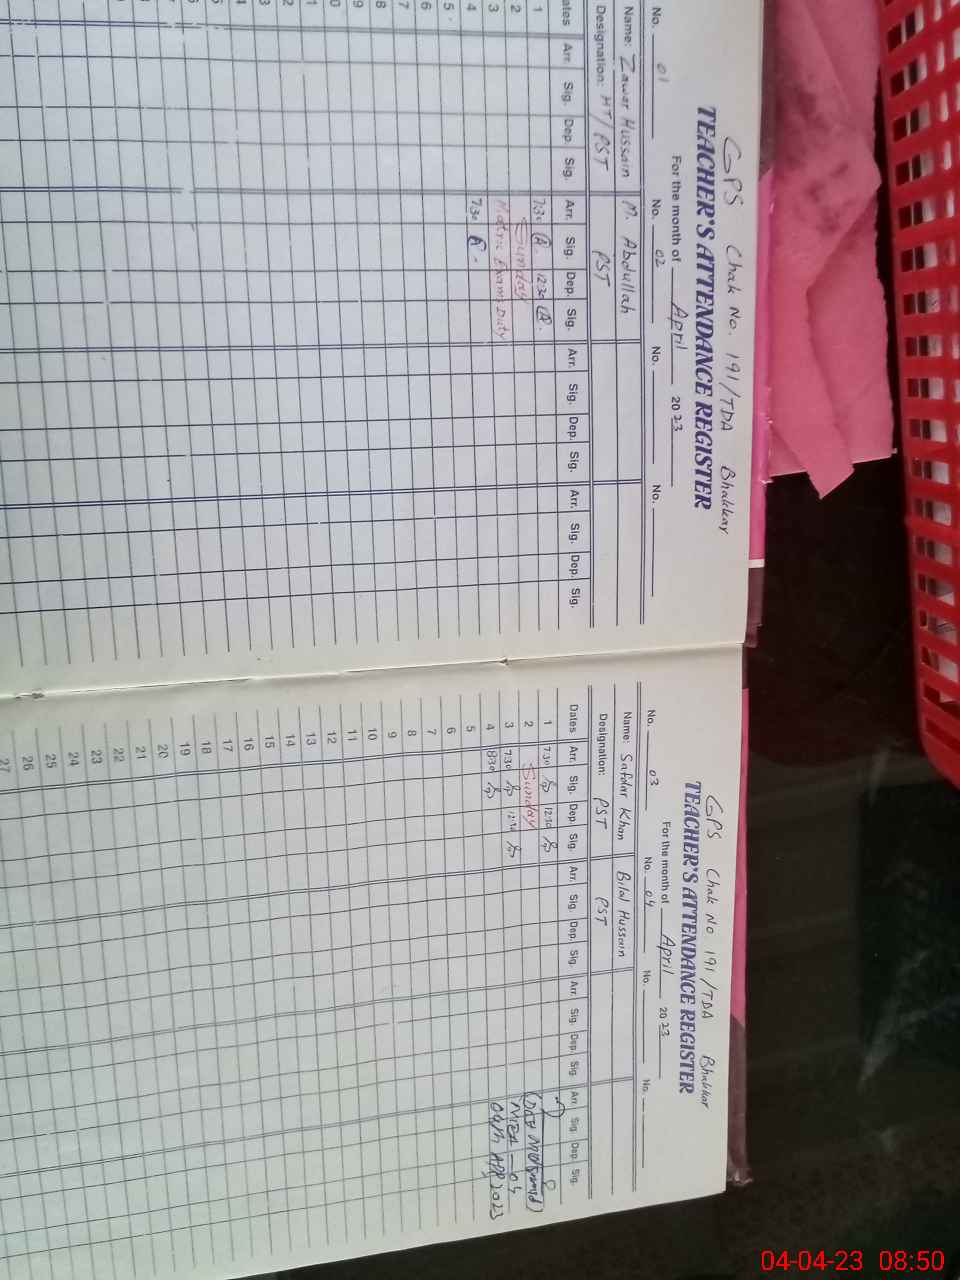 GPS Chak No. 191/TDA Bhakkar
TEACHER'S ATTENDANCE REGISTER
For the month of April 2023
No. 01 No. 02 No. No.
Name: Zawar Hussain M. Abdullah
Designation: HT/PST PST
ates Arr. Sig. Dep. Sig. Arr. Sig. Dep. Sig. Arr. Sig. Dep. Sig. Arr. Sig. Dep. Sig.
1 7:30 12:30
2 Sunday
3 Matric Exams Duty
4 7:30
5
6
7
8
9
GPS Chak No 191/TDA Bhakkar
TEACHER'S ATTENDANCE REGISTER
For the month of April 2023
No. 03 No. 04 No. No.
Name: Safdar Khan Bilal Hussain
Designation: PST PST
Dates Arr. Sig. Dep. Sig. Arr. Sig. Dep. Sig. Arr. Sig. Dep. Sig. Arr. Sig. Dep. Sig.
1 7:30 12:30
2 Sunday
3 7:30 12:30
4 8:30
5
6
7
8
9
10
11
12
13
14
15
16
17
18
19
20
21
22
23
24
25
26
27
04-04-23 08:50